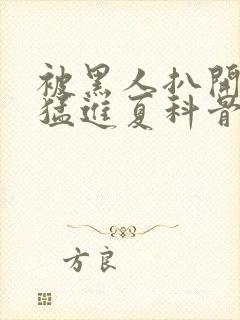 被黑人扒開
猛進夏科普
方良